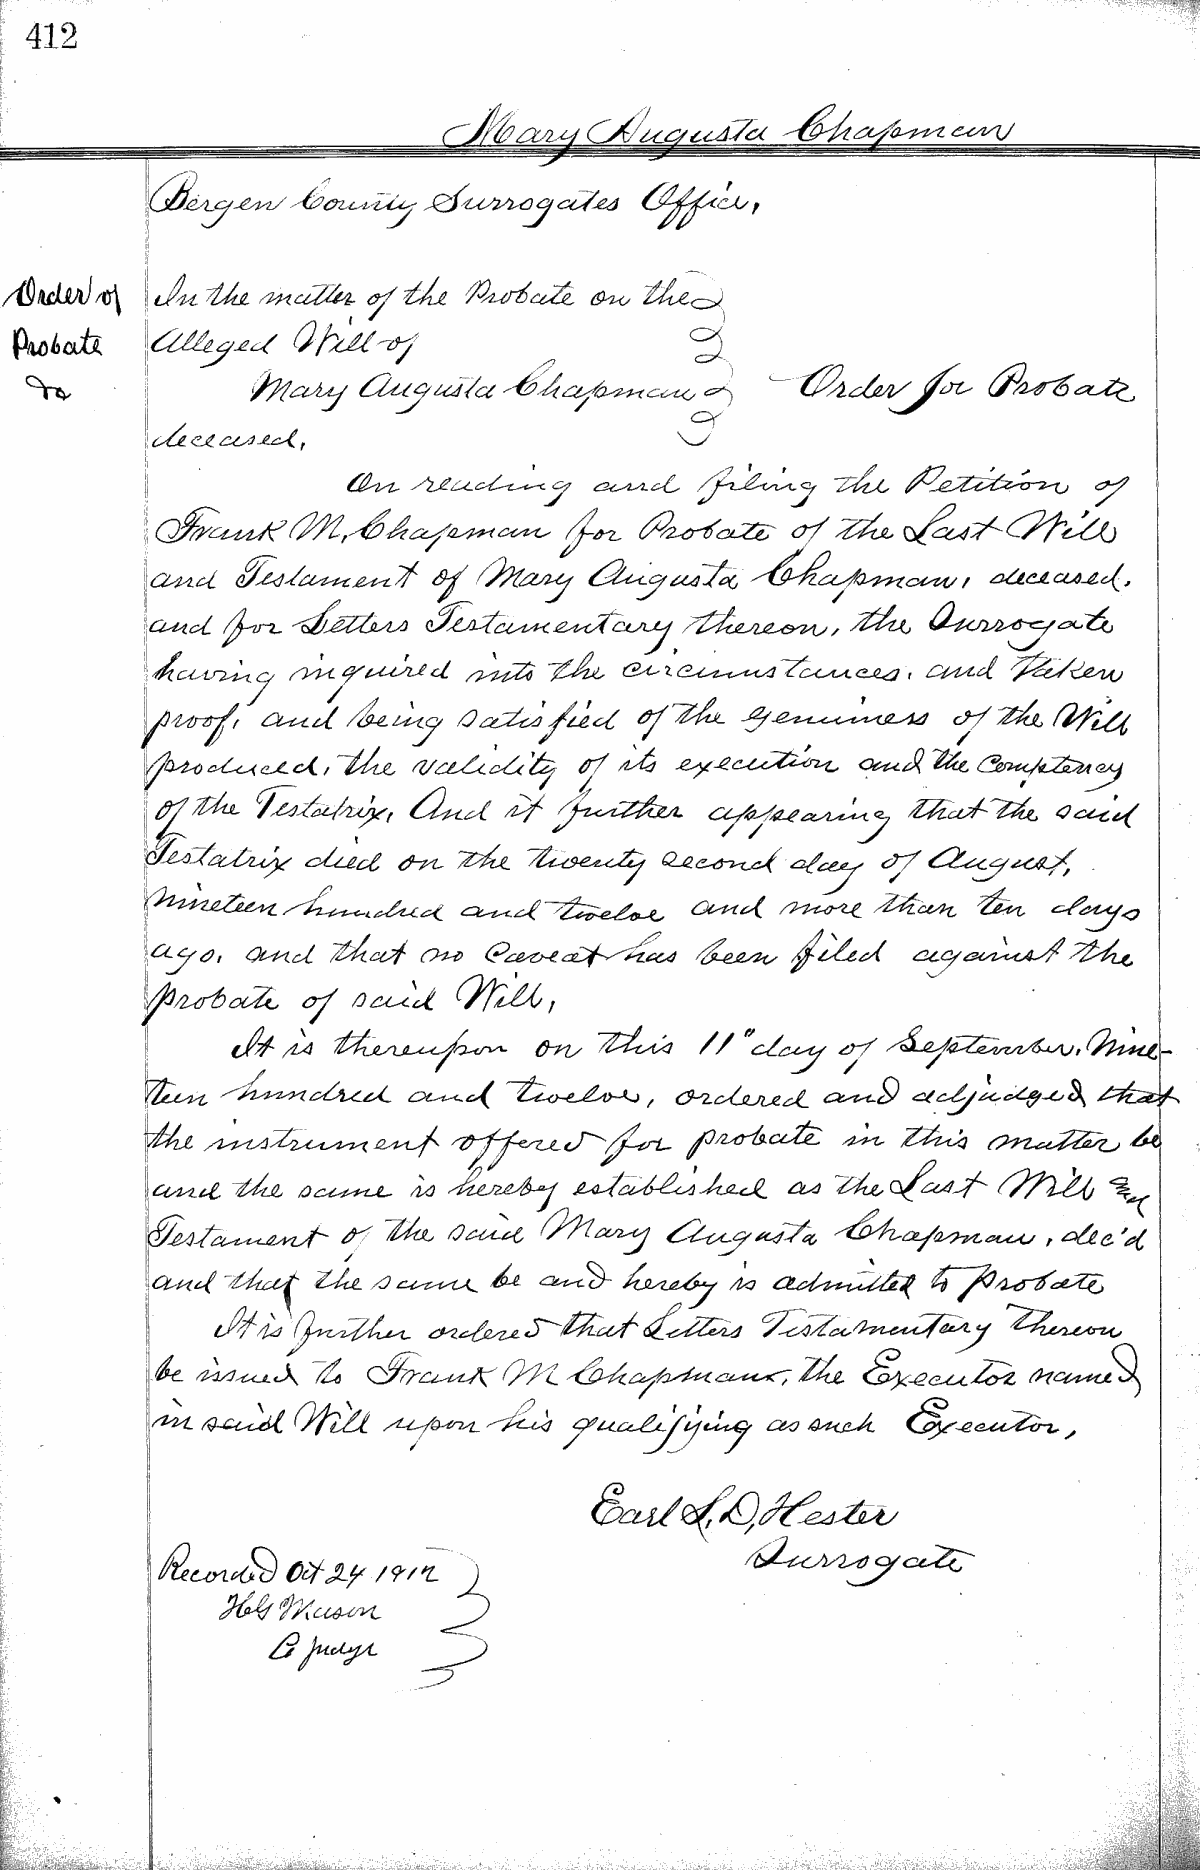 412
Mary Augusta Chapman
Bergen County Surrogates Office,
Order of
Probate
In the matter of the Probate on the
Alleged Will of
Mary Augusta Chapman
Order for Probate
deceased,
On reading and filing the Petition of
Frank M. Chapman for Probate of the Last Will
and Testament of Mary Augusta Chapman, deceased,
and for Letters Testamentary thereon, the Surrogate
having inquired into the circumstances, and taken
proof, and being satisfied of the genuiness of the Will
produced, the validity of its execution and the Comptency
of the Testatrix, And it further appearing that the said
Testatrix died on the twenty second day of August,
nineteen hundred and twelve and more than ten days
ago, and that no Caveat has been filed against the
probate of said Will,
It is thereupon on this 11" day of September, Nine-
teen hundred and twelve, ordered and adjudged that
the instrument offered for probate in this matter be
and the same is hereby established as the Last Will and
Testament of the said Mary Augusta Chapman, dec'd
and that the same be and hereby is admitted to Probate
It is further ordered that Letters Testamentary thereon
be issued to Frank M Chapman, the Executor named
in said Will upon his qualifying as such Executor,
Earl L. D. Hester
Surrogate
Recorded Oct 24 1912
Mason
Judge